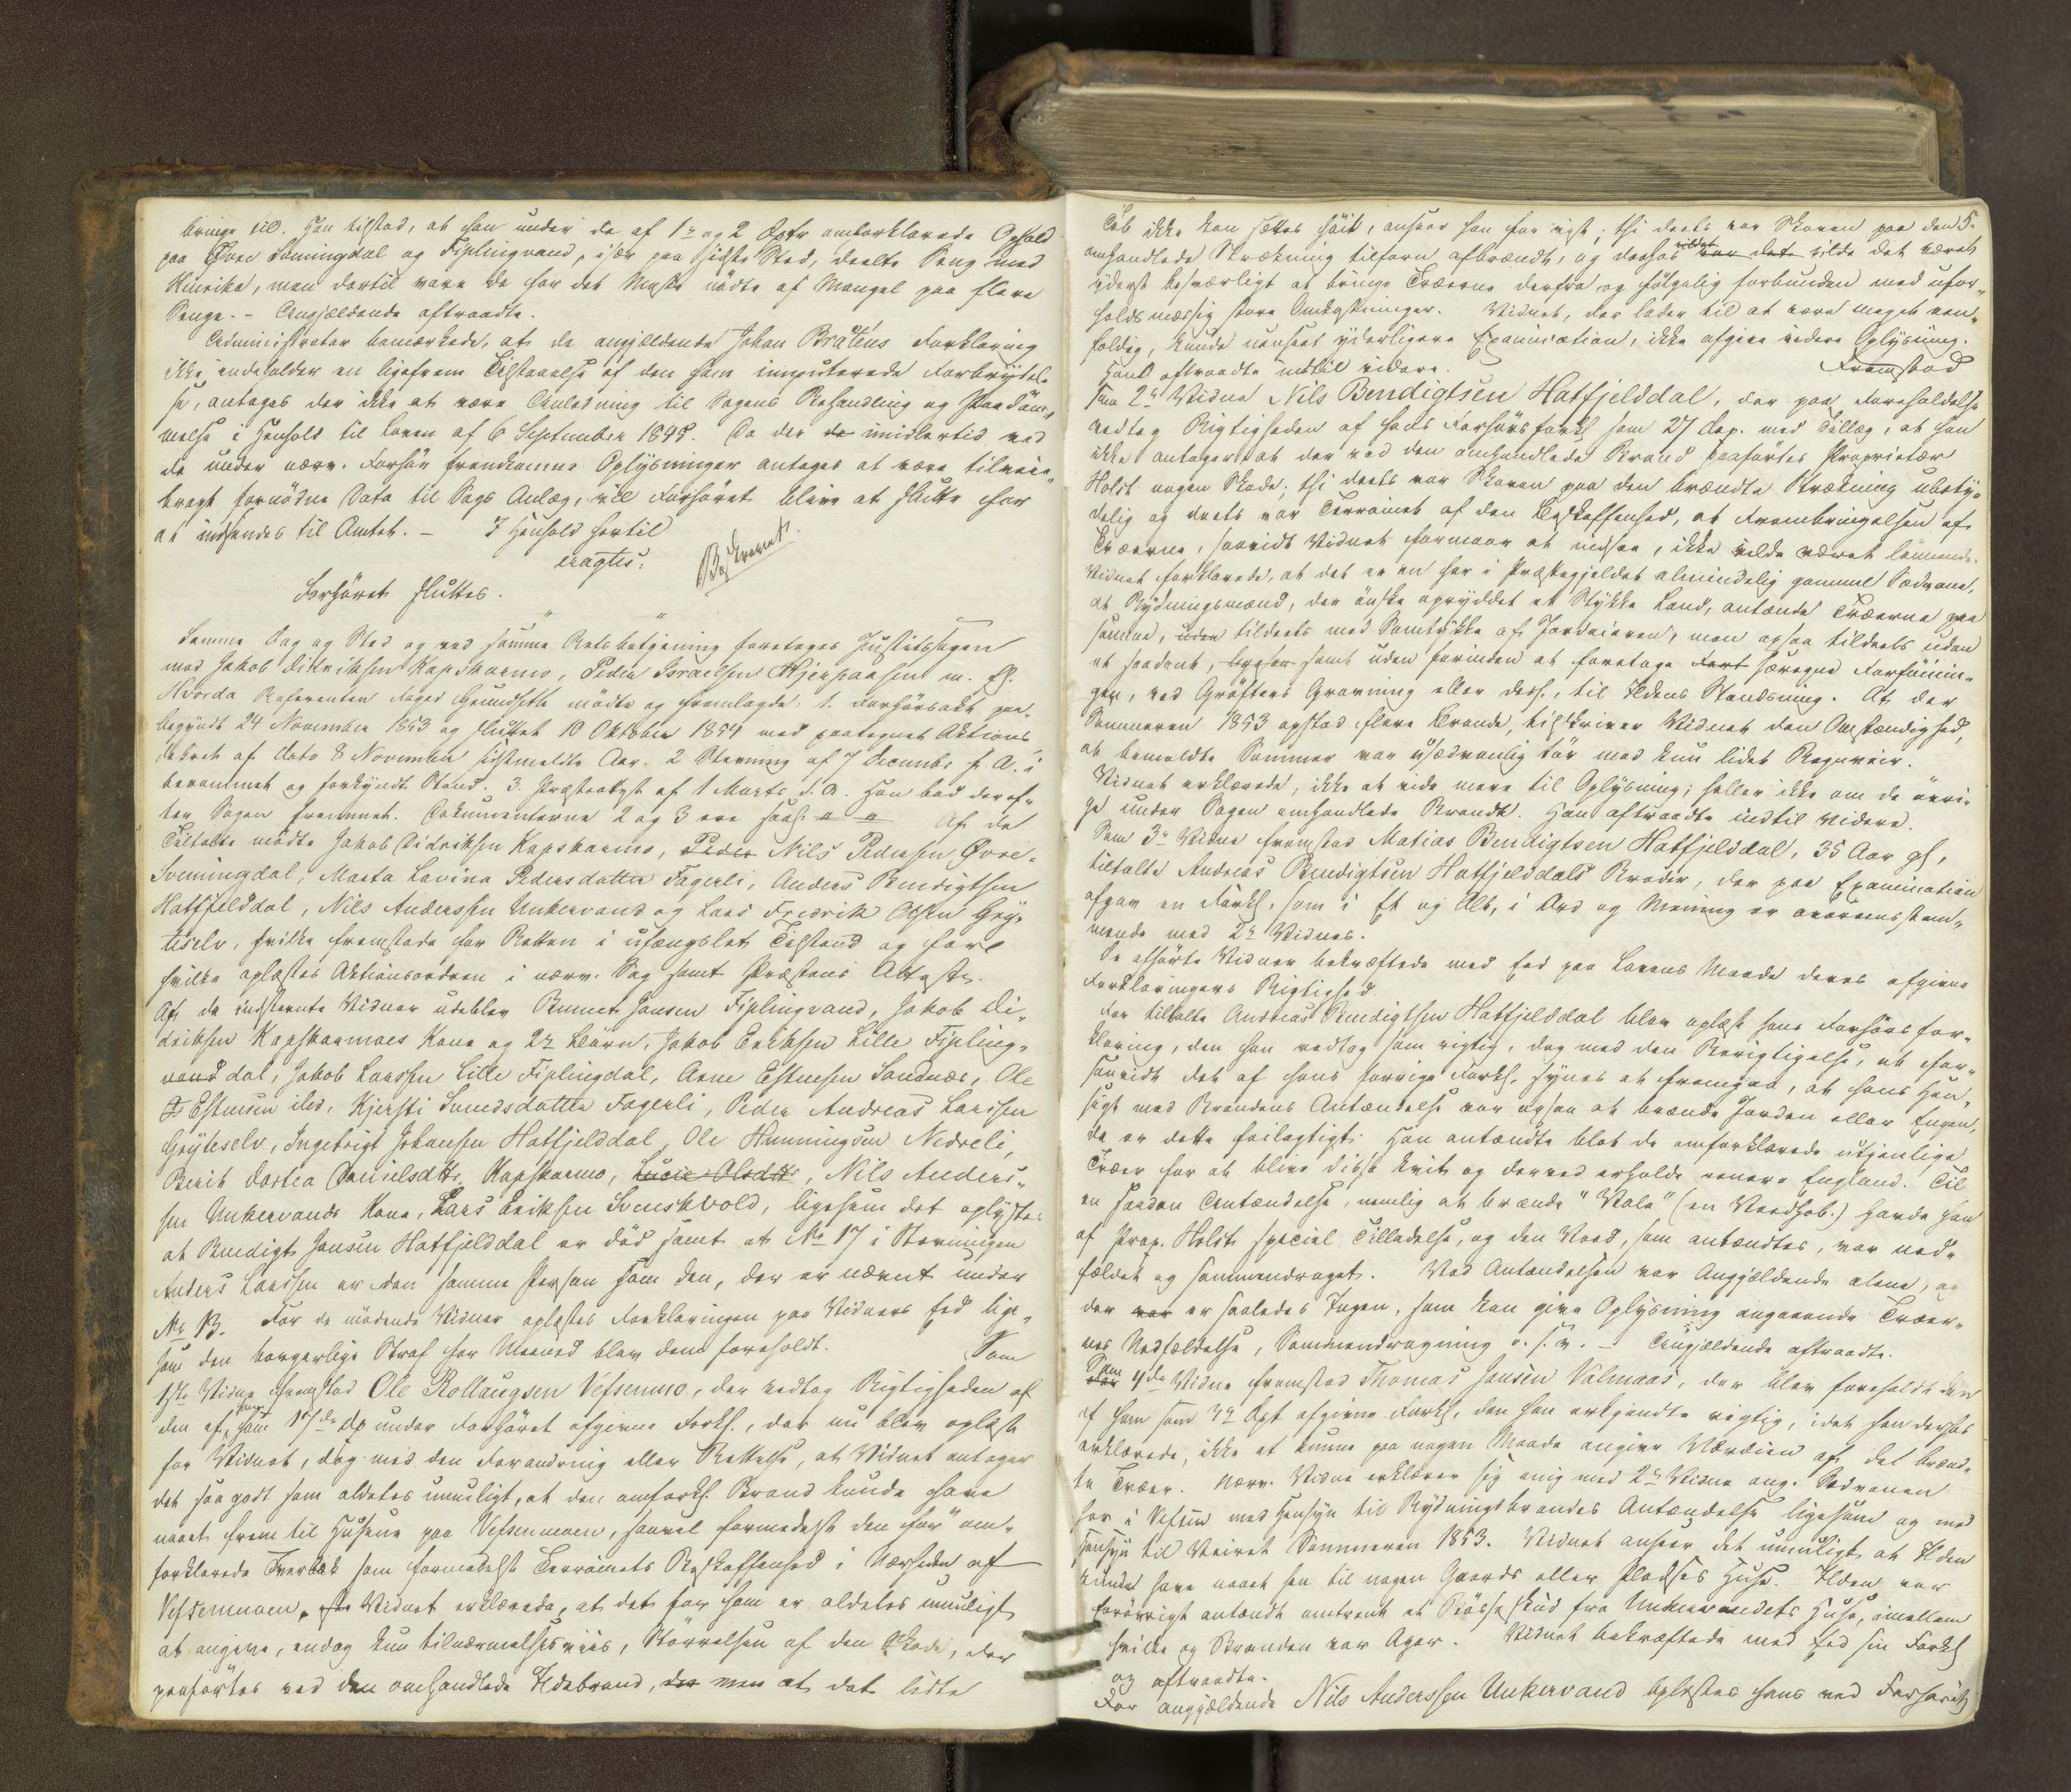 bringe til. Han tilstod, at han under de af 1ste og 2 Dptr omforklarede Ophold
paa Øvre Svenningdal og Fiplingvand, især paa sidste Sted, deelte Seng med
Hinrika, men dertil vare de for det Meste nödte af Mangel paa flere
Senge. - Angjældende aftraadte.
Administrator bemærkede, at da angjældende Johan Bratens Forklaring
ikke indeholder en ligefrem Tilstaaelse af den ham imputerede Forbrydel-
se, antages der ikke at være Anledning til Sagens Behandling og Paadöm-
melse i Henhold til Loven af 6 September 1845. Da der de imidlertid ved
de under nærv. Forhör fremkomne Oplysninger antages at være tilveie-
bragt fornödne Data til Sags Anlæg, vil Forhöret blive at slutte for
at indsendes til Amtet. - I Henhold hertil
eragtes:
Forhöret sluttes.
Samme Dag og Sted og ved samme Retsbetjening foretoges Justitssagen
mod Jakob Didriksen Kapskarmo, Peder Israelsen Hjerpaasen m. fl.
Hvorda Referenten Foged Grundseth mödte og fremlagde: 1. Forhörsakt paa-
begyndt 24 November 1853 og sluttet 10 Oktober 1854 med paategnet Aktions-
dekret af dato 8 November sidstmeldte Aar. 2 Stevning af 7 Decembr f. A. i
berammet og forkyndt Stand. 3. Præsteattest af 1 Marts d. A. Han bad deref-
ter Sagen fremmet. Dokumenterne 2 og 3 ere saal: " " Af de
Tiltalte mödte Jakob Didriksen Kapskarmo, Peder Nils Pedersen Övre-
Svenningdal, Marta Lavina Pedersdatter Fagerli, Anders Bendigtsen
Hatfjelddal, Nils Anderssen Unkervand og Lars Fredrik Olsen Gry-
teselv, hvilke fremstode for Retten i ufængslet Tilstand og for
hvilke oplæstes Aktionsordren i nærv. Sag samt Præstens Attest.
Af de indstevnte Vidner udeblev Bennet Jansen Fiplingvand, Jakob Di-
driksen Kapskarmoes Kone og 2de Börn, Jakob Eriksen Lille Fipling-
vand dal, Jakob Larssen Lille Fiplingdal, Arne Estensen Sandnæs, Ole
Estensen ibd, Kjersti Svendsdatter Fagerli, Peder Andreas Larssen
Gryteselv, Ingebrigt Johansen Hatfjelddal, Ole Henningsen Nedreli,
Berit Dortea Danielsdtr Kapskarmo, Lucie Olsdtr, Nils Anders-
sen Unkervands Kone, Lars Eriksen Svenskvold, ligesom det oplystes
at Bendigt Jansen Hatfjelddal er död samt at No 17 i Stevningen
Anders Larssen er den samme Person som den, der er nævnt under
No 13. For de mödende Vidner oplæstes Forklaringen paa Vidners Eed lige-
som den borgerlige Straf for Meened blev dem foreholdt. Som
1ste Vidne fremstod Ole Rollaugsen Vefsenmo, der vedtog Rigtigheden af
den af ham som 17de Dp under Forhöret afgivne Forkl., der nu blev oplæst
for Vidnet, dog med den Forandring eller Rettelse, at Vidnet antager
det saa godt som aldeles umuligt, at den omforkl. Brand kunde have
naaet frem til Husene paa Vefsenmoen, saavel formedelst den för om-
forklarede Tverbæk som formedelst Terrainets Beskaffenhed i Nærheden af
Vefsenmoen. Vidnet erklærede, at det for ham er aldeles umuligt
at angive, endog kun tilnærmelsesviis, Störrelsen af den Skade, der
paaförtes ved den omhandlede Ildebrand, der men at det lidte
5.
Tab ikke kan sættes höit, anseer han for vist; thi deels var Skoven paa den
omhandlede Strækning tilforn afbrændt, og deshos var det vilde det været
yderst besværligt at bringe Træerne derfra og fölgelig forbunden med ufor-
holdsmæssig store Omkostninger. Vidnet, der lader til at være meget een-
foldig, kunde uanseet yderligere Examination, ikke afgive videre Oplysning.
Hand aftraadte indtil videre. Fremstod
som 2det Vidne Nils Bendigtsen Hatfjelddal, der paa Foreholdelse
vedtog Rigtigheden af hans Forhörsforkl som 27 dep. med Tillæg, at han
ikke antager, at der ved den omhandlede Brand paaförtes Proprietær
Holst nogen Skade; thi deels var Skoven paa den brændte Strækning ubety-
delig og deels var Terrainet af den Beskaffenhed, at Frembringelsen af
Træerne, saavidt Vidnet formaar at indsee, ikke vilde været lönnende.
Vidnet forklarede, at det er en her i Præstegjeldet almindelig gammel Sædvane,
at Rydningsmænd, der önske opryddet et Stykke Land, antænde Træerne paa
samme, uden tildeels med Samtykke af Jordeieren, men ogsaa tildeels uden
et saadant, samt uden forinden at foretage fort særegne Forföinin-
ger, ved Gröfters Gravning eller desl., til Ildens Standsning. At der
Sommeren 1853 opstod flere Brande, tilskriver Vidnet den Omstændighed,
at bemeldte Sommer var usædvanlig tör med kun lidet Regnveir.
Vidnet erklærede, ikke at vide mere til Oplysning; heller ikke om de övri-
ge under Sagen omhandlede Brande. Han aftraadte indtil videre.
Som 3de Vidne fremstod Matias Bendigtsen Hatfjelddal, 35 Aar gl,
tiltalte Andreas Bendigtsen Hatfjelddals Broder, der paa Examination
afgav en Forkl. som i Et og Alt, i Ord og Mening er overensstem-
mende med 2det Vidnes.
De afhörte Vidner bekræftede med Eed paa Lovens Maade deres afgivne
Forklaringers Rigtighed.
For tiltalte Andreas Bendigtsen Hatfjelddal blev oplæst hans Forhörsfor-
klaring, den han vedtog som rigtig, dog med den Berigtigelse, at for-
saavidt det af hans forrige Forkl. synes at fremgaa, at hans Hen-
sigt med Brandens Antændelse var ogsaa at brænde Jorden eller Engen,
da er dette feilagtigt. Han antændte blot de omforklarede utjenlige
Træer for at blive disse kvit og derved erholde renere England. Til
en saadan Antændelse, nemlig at brænde "Vola" (en Veedhob.) havde han
af Prop. Holst speciel Tilladelse, og den Veed, som antændtes, var ned-
fældet og sammendraget. Ved Antændelsen var Angjældende alene, og
der var er saaledes Ingen, som kan give Oplysning angaaende Træer-
nes Nedfældelse, Sammendragning o. s. v. - Angjældende aftraadte.
Som 4de Vidne fremstod Thomas Jansen Valmaas, der blev foreholdt den
af ham som 3de Dpt afgivne Forkl, den han erkjendte rigtig, idet han deshos
erklærede, ikke at kunne paa nogen Maade angive Værdien af det brænd-
te Træer. Nærv. Vidne erklærer sig enig med 2det Vidne ang. Sædvanen
her i Vefsen med Hensyn til Rydningsbrandes Antændelse ligesom og med
Hensyn til Veiret Sommeren 1853. Vidnet anseer det umuligt at Ilden
kunde have naaet hen til nogen Gaards eller Pladses Huse. Ilden var
forövrigt antændt omtrent et Bösseskud fra Unkervandets Huse, imellem
hvilke og Branden var Ager. Vidnet bekræftede med Eed sin Forkl
og aftraadte.
For angjældende Nils Anderssen Unkervand oplæstes hans ved Forhöret